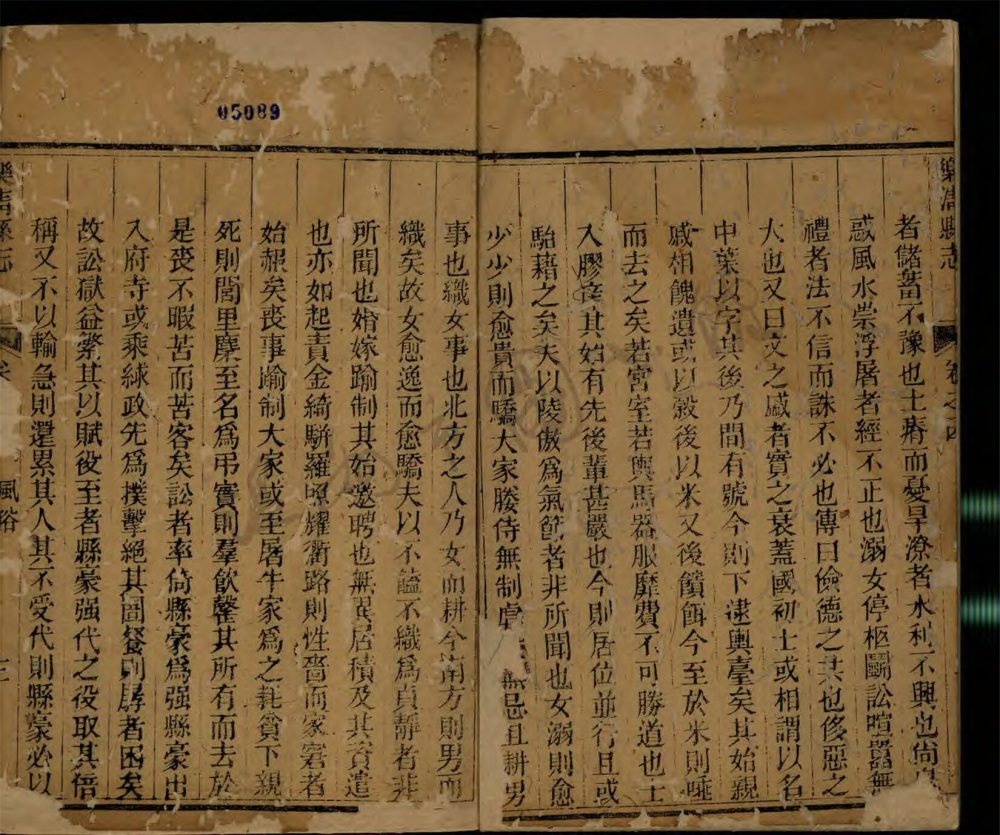 05089
樂清縣志
卷之四
者儲蓄不豫也士瘠而憂旱潦者水利不興也尚
惑風水崇浮屠者經不正也溺女停柩鬭訟喧嚣無
禮者法不信而誅不必也傳曰儉德之共也侈惡之
大也又曰文之盛者實之衰蓋國初士或相謂以名
中葉以字其後乃間有號今則下逮輿臺矣其始親
戚相餽遺或以穀後以米又後饋餌今至於米則唾
而去之矣若宮室若輿馬器服靡費不可勝道也士
入膠庠其始有先後輩甚嚴也今則居位並行且或
駘藉之矣夫以陵傲爲氣節者非所聞也女溺則愈
少少則愈貴而驕大家媵侍無制虐無忌且耕男
事也織女事也北方之人乃女而耕今南方則男而
織矣故女愈逸而愈驕夫以不饁不織爲貞靜者非
所聞也婚嫁踰制其始邀聘也無異居積及其資遣
也亦如起責金綺駢羅照耀衢路則性嗇而家窘者
始赧矣喪事踰制大家或至屠牛家爲之耗貧下親
死則閭里麇至名爲弔實則羣飲罄其所有而去於
是喪不暇苦而苦客矣訟者率倚縣豪爲强縣豪出
入府寺或乘綠政先爲撲擊絕其圄餐則孱者困矣
故訟獄益繁其以賦役至者縣豪强代之役取其倍
稱又不以輸急則還累其人其不受代則縣豪必以
樂清縣志
風俗
三